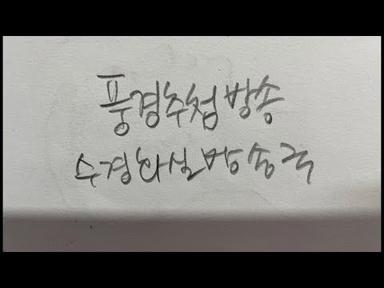 풍경추첨방송
수경화실방송국